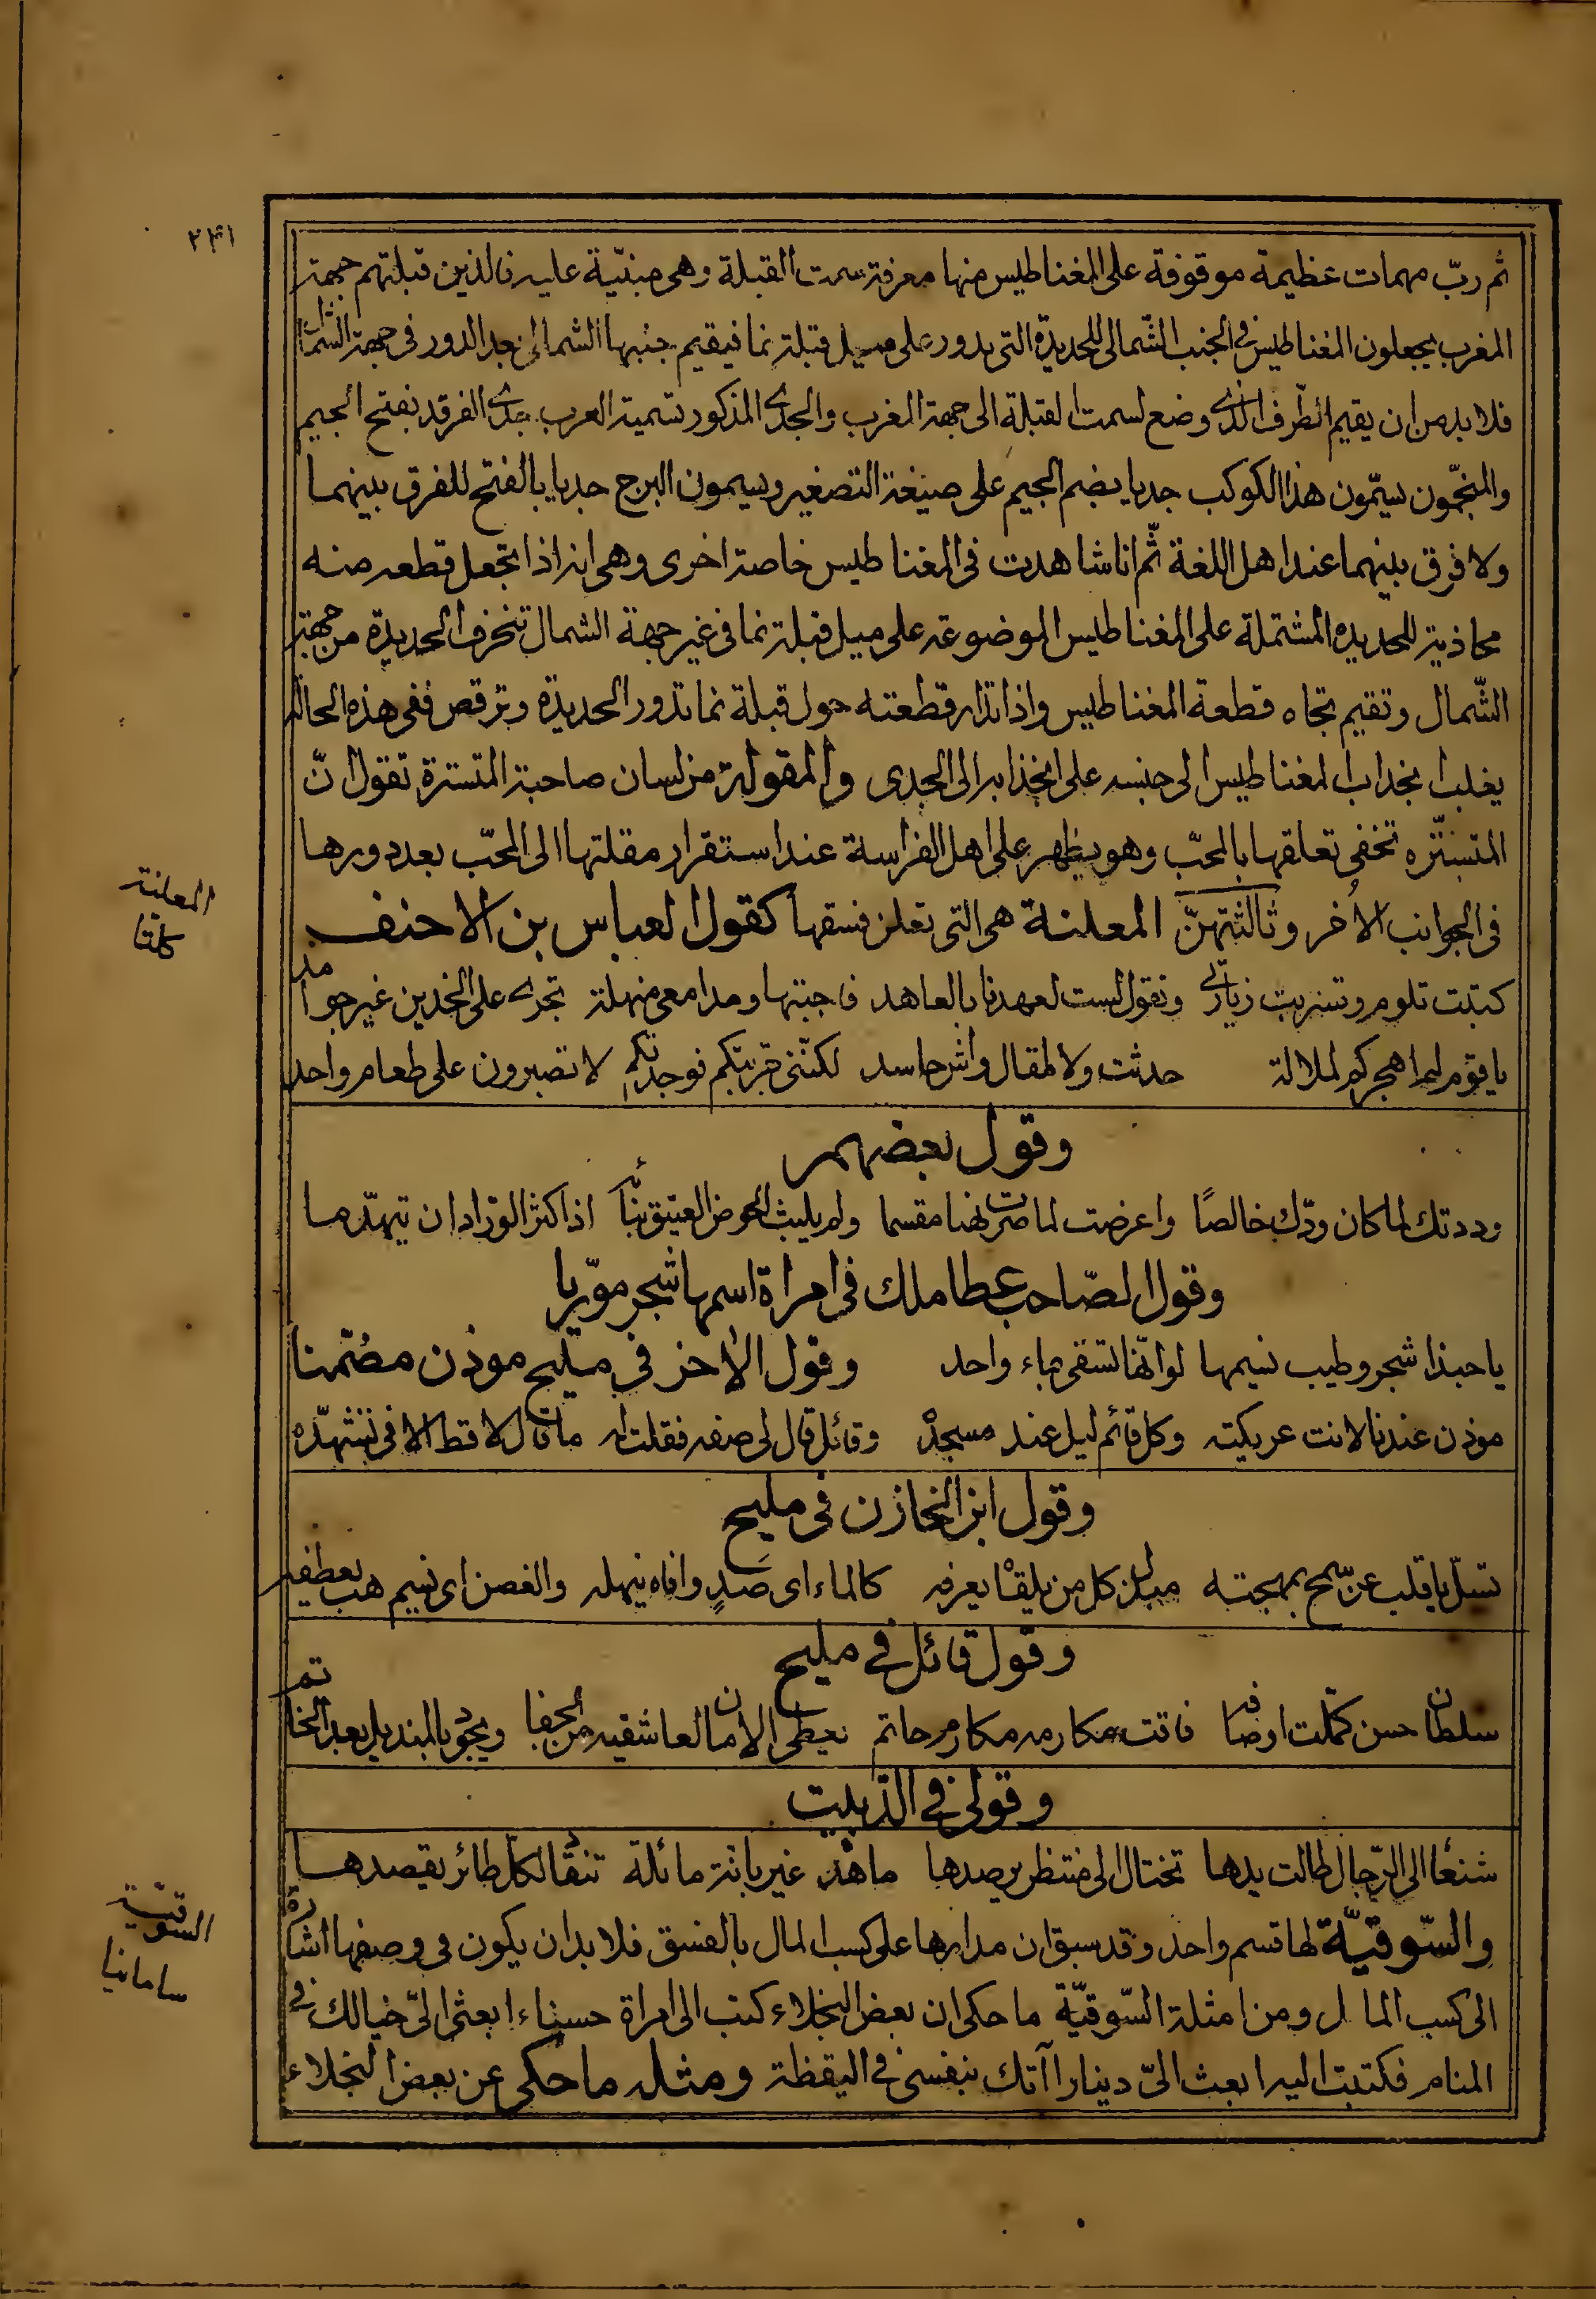 ٢٣١
ثم ربّ مهمات عظيمة موقوفة على المغناطيس منها معرفة سمت القبلة وهى مبنيّة عليه فالذين قبلتهم جهة
المغرب يجعلون المغناطيس فى الجنب الشّمالى للحديدة التى يدور على ميل قبلة نما فيقيم جنبها الشمالى بعد الدور فى جهة الشمال
فلا بد من ان يقيم الطّرف الذى وضع لسمت القبلة الى جهة المغرب والجدى المذكور تسمية العرب جدى الفرقد بفتح الجيم
والمنجّمون يسمّون هذا الكوكب جديا بضم الجيم على صيغة التصغير ويسمون البرج جديا بالفتح للفرق بينهما
ولا فرق بينهما عند اهل اللغة ثمّ انا شاهدت فى المغناطيس خاصة اخرى وهى انه اذا تجعل قطعه منه
محاذية للحديده المشتملة على المغناطيس الموضوعة على ميل قبلة نما فى غير جهة الشمال تنحرف الحديدة من جهة
الشّمال وتقيم تجاه قطعة المغناطيس واذا تدار قطعته حول قبلة نما تدور الحديدة وترقص ففى هذه الحالة
يغلب انجذاب المغناطيس الى جنسه على انجذابه الى الجدى والمقولة من لسان صاحبة المتسترة تقول انّ
المتستّره تخفى تعلقها بالمحبّ وهو يظهر على اهل الفراسة عند استقرار مقلتها الى المحبّ بعد دورها
فى الجوانب الأُخر وثالثتهنّ المعلنة هى التى تعلن فسقها كقول العباس بن الاحنف
المعلنة
كلتا
كتبت تلوم وتستريب زيارتى وتقول لست لعهدنا بالعاهد فاجبتها ومدامعى منهلة تجرى على الخدين غير جوامد
يا قوم لم اهجركم لملالة حدثت ولا لمقال واش حاسد لكنّنى جرّبتكم فوجدتكم لا تصبرون على طعام واحد
وقول بعضهم
وددتك لما كان ودّك خالصًا واعرضت لما صرت نهبا مقسما ولم يلبث الحوض العتيق بناؤه اذا كثر الورّاد ان يتهدّما
وقول الصّاحب عطا ملك فى امراة اسمها شجر مورّيا
يا حبذا شجر وطيب نسيمها لو انّها تسقى بماء واحد وقول الاٰخر فى مليح موذن مضمّنا
موذن عندنا لانت عريكته وكل قائم ليل عند مسجده وقائل قال لى صفه فقلت له ما قال لا قط الا فى تشهّده
وقول ابن الخازن فى مليح
تسلّ يا قلب عن سمح بمهجته مبذل كل من يلقاه يعرفه كالماء اى صدٍ وافاه ينهله والغصن اى نسيم هب يعطفه
وقول قائل فى مليح
سلطان حسن كمّلت اوصافه فاقت مكارمه مكارم حاتم يعطى الامان لعاشقيه من الجفا ويجود بالمنديل بعد الخاتم
وقولى فى الدّبيت
شنعٔا الى الرّجال طالت يدها تختال الى منتظر يرصدها ما هذه غير بانة مائلة تنقٔا لكل طائر يقصدها
والسّوقيّة لها قسم واحد وقد سبق ان مدارها على كسب المال بالفسق فلا بد ان يكون فى وصفها اشارة
السوقيّة
سامانيا
الى كسب المال ومن امثلة السّوقيّة ما حكى ان بعض البخلاء كتب الى امراة حسناء ابعثى الىّ خيالك فى
المنام فكتبت اليه ابعث الىّ دينارا آتك بنفسى فى اليقظة ومثله ما حكى عن بعض البخلاء